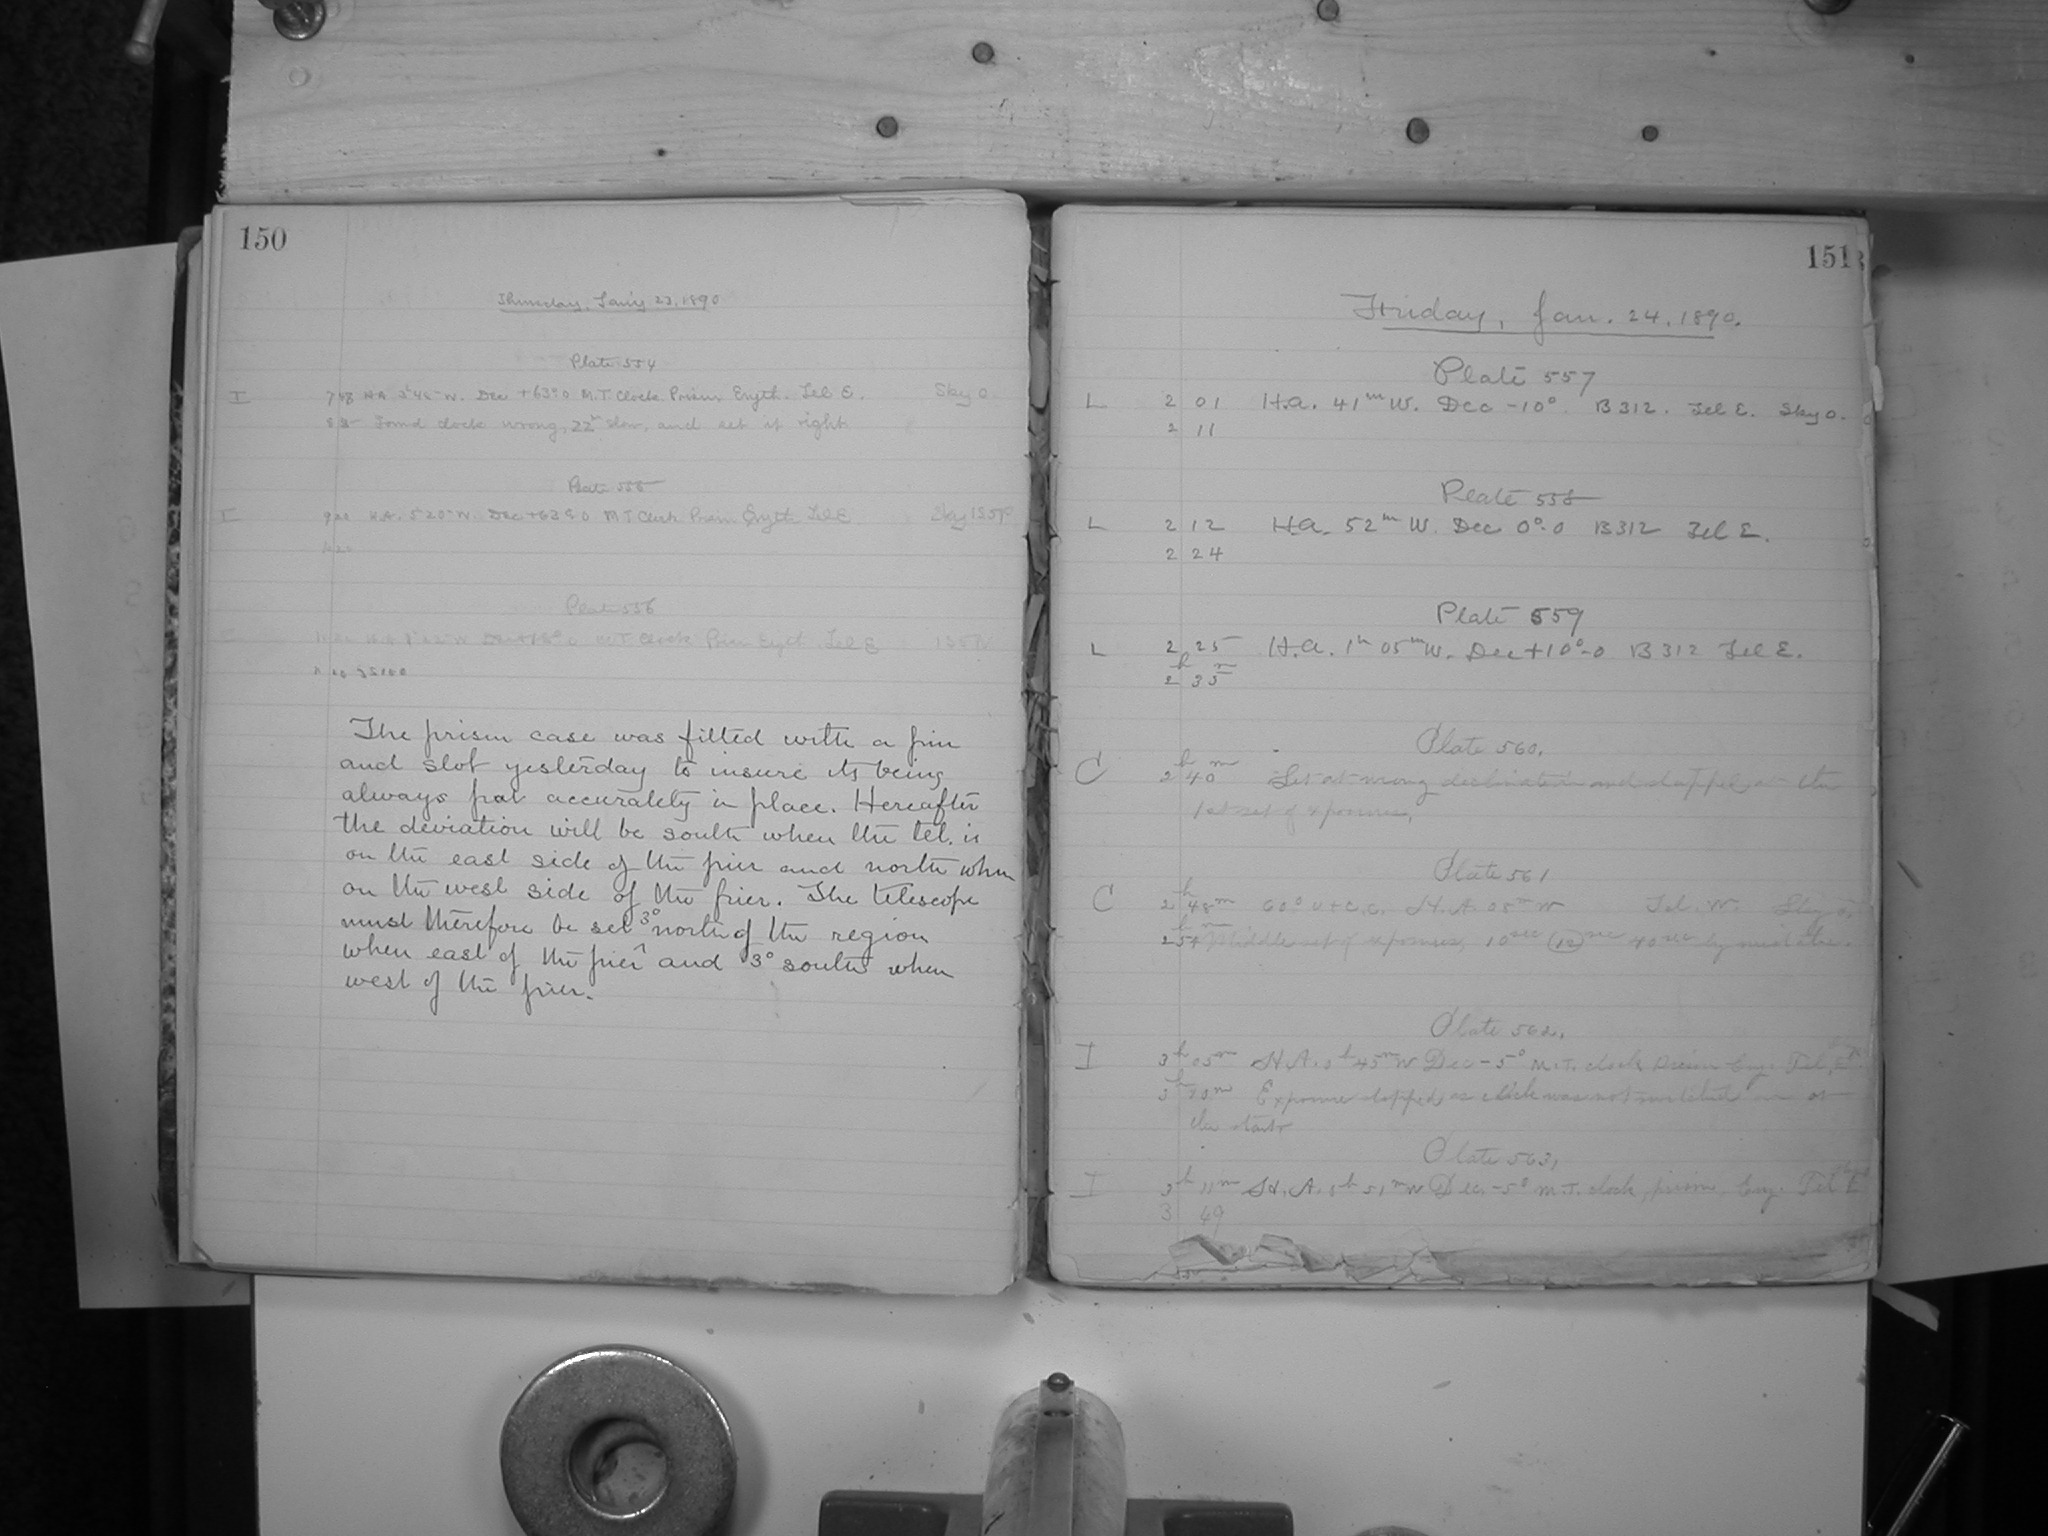 150
Thursday, Jan'y 23, 1890
Plate 554
I 7 58 H.A. 3 45 W. Dec +63°.0 M.T. Clock Prism Eryth. Tel E. Sky 0.
Found clock wrong, slow, and set it right
Plate 555
I H.A. 5 20 W. Dec +63°.0 M.T. Clock Prism Eryth Tel E Sky
Plate 556
M.T. Clock Prism Eryth Tel E
The prism case was fitted with a pin
and slot yesterday to insure its being
always put accurately in place. Hereafter
the deviation will be south when the tel. is
on the east side of the pier and north when
on the west side of the pier. The telescope
must therefore be set 3° north of the region
when east of the pier and 3° south when
west of the pier.
151
Friday, Jan. 24, 1890.
Plate 557
L 2 01 H.a. 41m W. Dec -10°. B 312. Tel E. Sky 0.
2 11
Plate 558
L 2 12 H.a. 52m W. Dec 0°.0 B 312 Tel E.
2 24
Plate 559
L 2 25 H.a. 1h 05m W. Dec +10°.0 B 312 Tel E.
2h 35m
Plate 560.
C 2h 40m Set at wrong declination and stopped at the
1st set of exposures,
Plate 561
C 2h 48m 60° U+C.C. H.A. 08m W Tel. W. Sky 0.
2h 54m Middle set of exposures, 10sec (12)sec 40sec by mistake.
Plate 562.
I 3h 05m H.A. 45m W Dec -5° M.T. clock prism Ery. Tel. E
Exposure stopped as clock was not switched on at
the start
Plate 563,
I 3h 11m H.A. 51m W Dec. -5° M.T. clock, prism Ery. Tel E
3 49